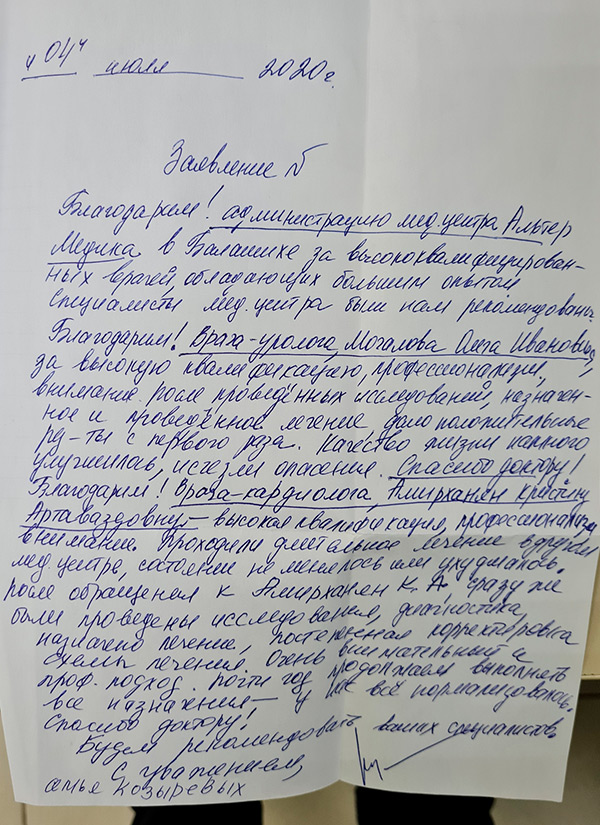 "04" июля 2020г.
Заявление №
Благодарим! администрацию мед.центра Альтер
Медика в Балашихе за высококвалифицирован-
ных врачей, обладающих большим опытом
Специалисты мед.центра были нам рекомендованы.
Благодарим! Врача-уролога, Могалова Олега Ивановича,
за высокую квалификацию, профессионализм,
внимание. После проведённых исследований, назначен-
ное и проведённое лечение, дало положительные
рез-ты с первого раза. Качество жизни намного
улучшилось, исчезли опасения. Спасибо доктору!
Благодарим! Врача-кардиолога, Амирханян Кристину
Артаваздовну – высокая квалификация, профессионализм,
внимание. Проходили длительное лечение в другом
мед.центре, состояние не менялось или ухудшалось.
После обращения к Амирханян К.А, сразу же
были проведены исследования, диагностика,
назначено лечение, постепенная корректировка
схемы лечения. Очень внимательный и
проф. подход. Почти год продолжаем выполнять
все назначения – у нас всё нормализовалось.
Спасибо доктору!
Будем рекомендовать ваших специалистов.
С уважением,
семья Козыревых